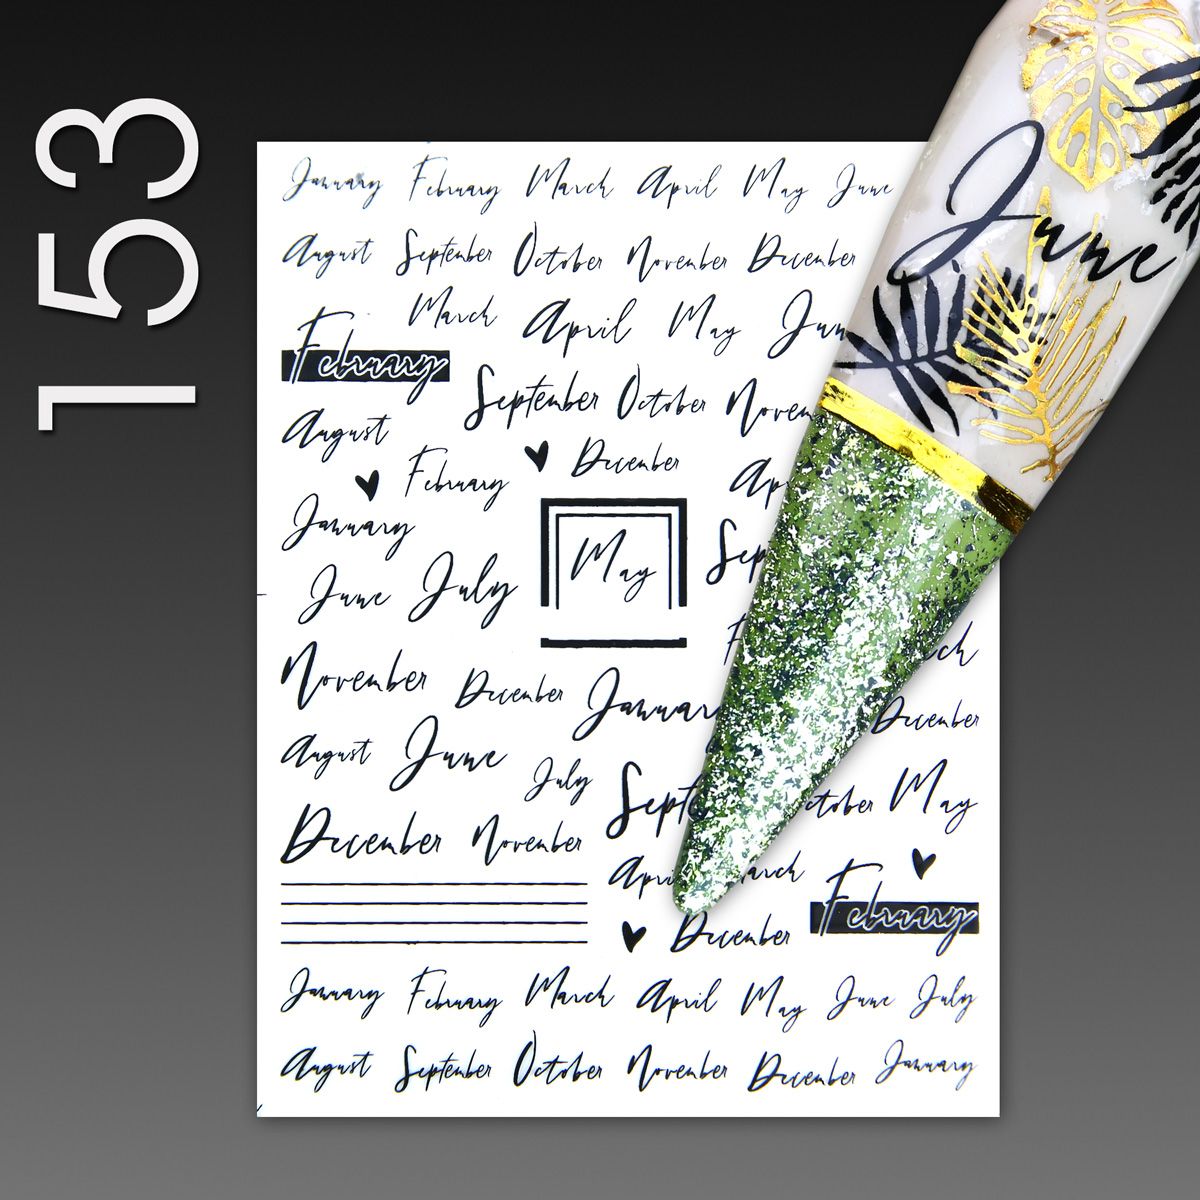 153
January February March April May June
August September October November December
March April May Jun
February
September October Novem
August
December
February
Ap
January
May
Sep
June July
F
ch
November December January
December
August June
July
Sept
ctober May
December November
Apri arch
February
December
January February March April May June July
August September October November December January
June